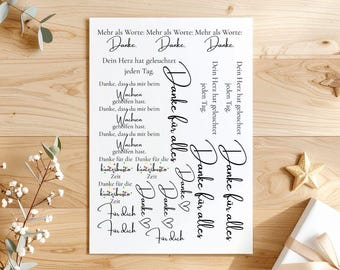 Mehr als Worte:
Danke.
Mehr als Worte:
Danke.
Mehr als Worte:
Danke.
Dein Herz hat geleuchtet
jeden Tag.
Danke, dass du mir beim
Wachsen
geholfen hast.
Danke, dass du mir beim
Wachsen
geholfen hast.
Danke, dass du mir beim
Wachsen
geholfen hast.
Danke für alles
Dein Herz hat geleuchtet
jeden Tag.
Dein Herz hat geleuchtet
jeden Tag.
Danke für alles
Danke für alles
Danke für die
Zeit
Danke für die
Zeit
Danke für die
Zeit
Danke
Danke
Danke
Für dich
Für dich
Für dich